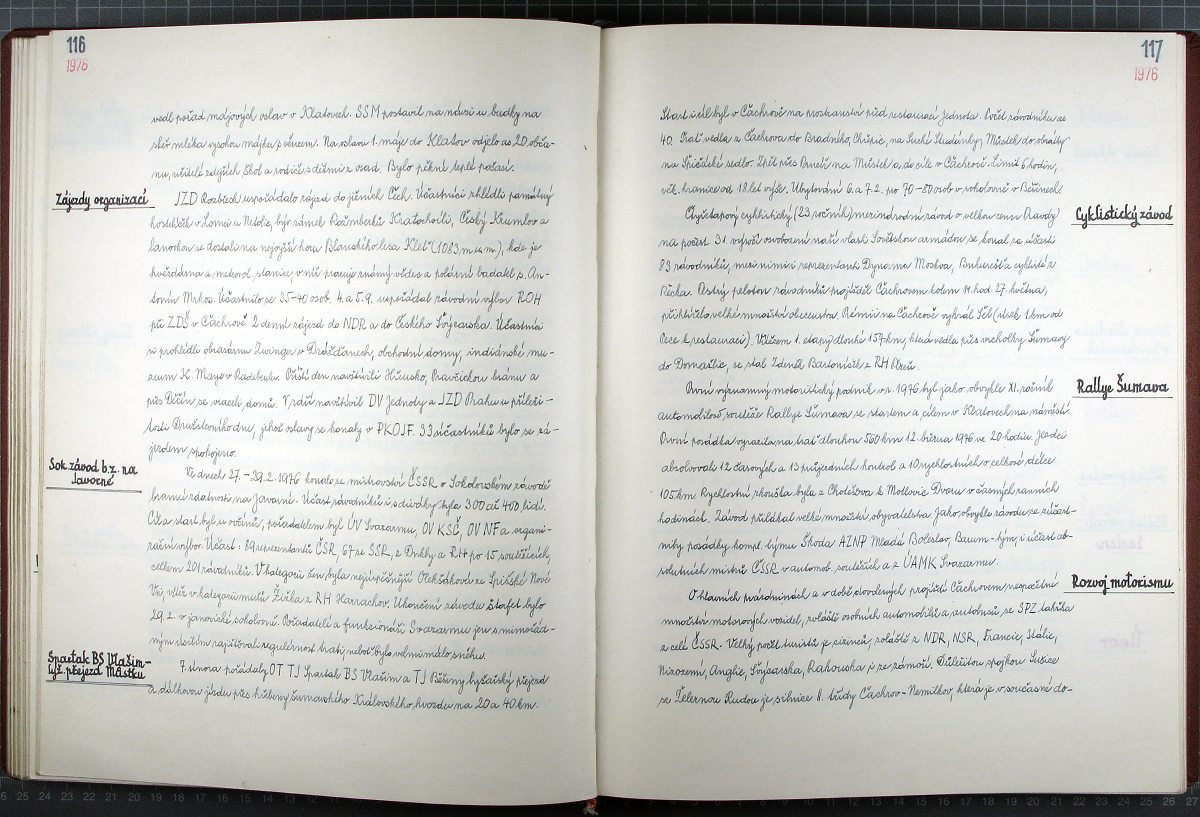 116
1976
vedl pořad májových oslav v Klatovech. SSM postavil na návsi u budky na
sběr mléka vysokou májku s věncem. Na oslavu 1. máje do Klatov odjelo as 20 obča-
nů, učitelé zdejších škol a rodiče s dětmi z osad. Bylo pěkné teplé počasí.
Zájezdy organizací
JZD Rozběch uspořádalo zájezd do jižních Čech. Účastníci zhlédli památný
kostelíček v Lomci u Netolic, býv. zámek Rožmberků Kratochvíli, Český Krumlov a
lanovkou se dostali na nejvyšší horu Blanského lesa Kleť (1083 m n. m.), kde je
hvězdárna a meteorol. stanice, v nů pracuje známý vědec a polární badatel s. An-
tonín Mrkos. Účastnilo se 35-40 osob. 4. a 5.9. uspořádal závodní výbor ROH
při ZDŠ v Čachrově 2 denní zájezd do NDR a do Českého Švýcarska. Účastníci
si prohlédli obrazárnu Zwinger v Drážďanech, obchodní domy, indiánské mu-
zeum K. Maye v Radebeulu. Příští den navštívili Hřensko, Pravčickou bránu a
přes Děčín se vraceli domů. V září navštívil DV Jednoty a JZD Prahu u příleži-
tosti Družstevního dne, jehož oslavy se konaly v PKOJF. 33 účastníků bylo se zá-
jezdem spokojeno.
Sok. závod b. z. na
Javorné
Ve dnech 27. - 29. 2. 1976 konalo se mistrovství ČSSR v Sokolovském závodě
branné zdatnosti na Javorné. Účast závodníků i s diváky byla 300 až 400 lidí.
Cíl a start byl u ovčína, pořadatelem byl ÚV Svazarmu, OV KSČ, OV NF a organi-
zační výbor. Účast: 89 reprezentantů ČSR, 67 ze SSR, z Dukly a RH po 15 soutěžících,
celkem 201 závodníků. V kategorii žen byla nejúspěšnější Olekšáková ze Spišské Nové
Vsi, vítěz v kategorii mužů Žižka z RH Harrachov. Ukončení závodu štafet bylo
29. 2. v janovické sokolovně. Pořadatelé a funkcionáři Svazarmu jen s mimořád-
ným úsilím zajišťovali regulérnost trati, neboť bylo velmi málo sněhu.
Spartak BS Vlašim-
lyž. přejezd Můstku
7. února pořádaly OT TJ Spartak BS Vlašim a TJ Běšiny lyžařský přejezd
a dálkovou jízdu přes hřebeny šumavského Královského hvozdu na 20 a 40 km.
117
1976
Start i cíl byl v Čachrově na prostranství před restaurací Jednota. Počet závodníků as
40. Trať vedla z Čachrova do Bradného, Chřepic, na Suché Studánky, Můstek do obrátky
na Špičácké sedlo. Zpět přes Pancíř na Můstek a do cíle v Čachrově. Limit 6 hodin,
věk. hranice od 18 let výše. Ubytování 6. a 7. 2. po 70-80 osob v sokolovně v Běšinech.
Cyklistický závod
Čtyřetapový cyklistický (23. ročník) mezinárodní závod o velkou cenu Pravdy
na počest 31. výročí osvobození naší vlasti Sovětskou armádou se konal za účasti
83 závodníků, mezi nimi i reprezentanti Dynama Moskva, Bukurešť a cyklisté z
Řecka. Pestrý peloton závodníků projížděl Čachrovem kolem 14. hod. 27. května,
přihlíželo velké množství obecenstva. Prémii na Čachrově vyhrál Šél (úsek 1 km od
Pece k restauraci). Vítězem 1. etapy dlouhé 157 km, která vedla přes vrcholky Šumavy
do Domažlic, se stal Zdeněk Bartoníček z RH Plzeň.
Rallye Šumava
První významný motoristický podnik v r. 1976 byl jako obvykle XI. ročník
automobilové soutěže Rallye Šumava se startem a cílem v Klatovech na náměstí.
První posádka vyrazila na trať dlouhou 560 km 12. března 1976 ve 20 hodin. Jezdci
absolvovali 12 časových a 13 průjezdních kontrol a 10 rychlostních o celkové délce
105 km. Rychlostní zkouška byla z Chotěšova k Mottlovic Dvoru v časných ranních
hodinách. Závod přilákal velké množství obyvatelstva. Jako obvykle závodu se zúčast-
nily posádky kompl. týmu Škoda AZNP Mladá Boleslav, Barum-tým, i účast ab-
solutních mistrů ČSSR v automob. soutěžích a z ÚAMK Svazarmu.
Rozvoj motorismu
O hlavních prázdninách a v době dovolených projíždí Čachrovem nespočetné
množství motorových vozidel, zvláště osobních automobilů a autobusů se SPZ takřka
z celé ČSSR. Velký počet turistů je z ciziny, zvláště z NDR, NSR, Francie, Itálie,
Nizozemí, Anglie, Švýcarska, Rakouska, i ze zámoří. Důležitou spojkou Sušice
se Železnou Rudou je silnice II. třídy Čachrov-Nemilkov, která je v současné do-